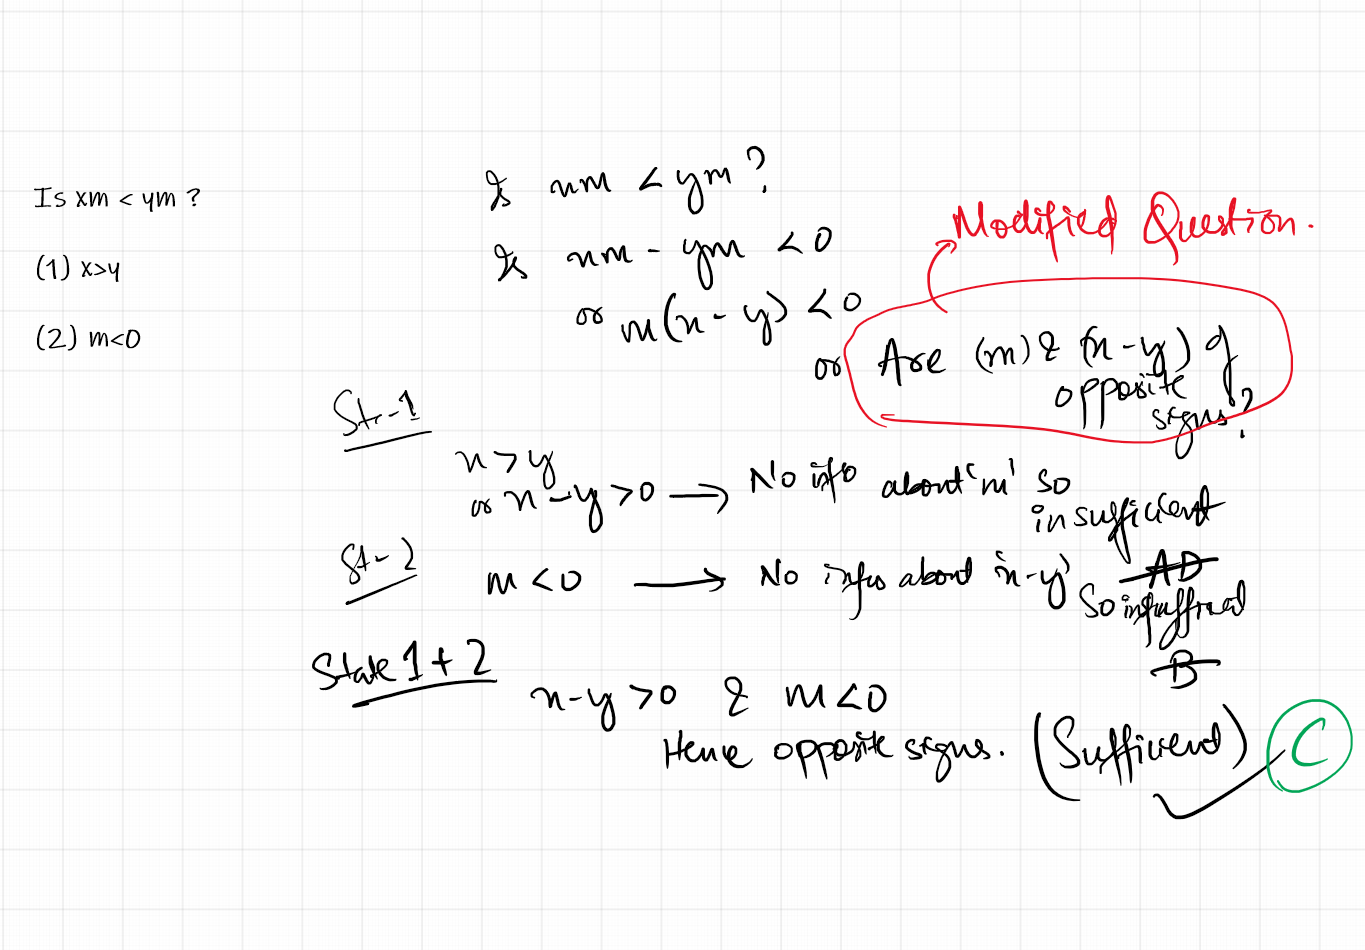 Is xm < ym ?
(1) x>y
(2) m<0
Is xm < ym?
Is xm - ym < 0
or m(x-y) < 0
Modified Question.
or Are (m) & (x-y) of
opposite
signs?
St-1
x > y
or x-y > 0 → No info about 'm' so
insufficient
AD
St-2
m < 0 → No info about 'x-y'
So insufficient
B
State 1 + 2
x-y > 0 & m < 0
Hence opposite signs. (Sufficient) C